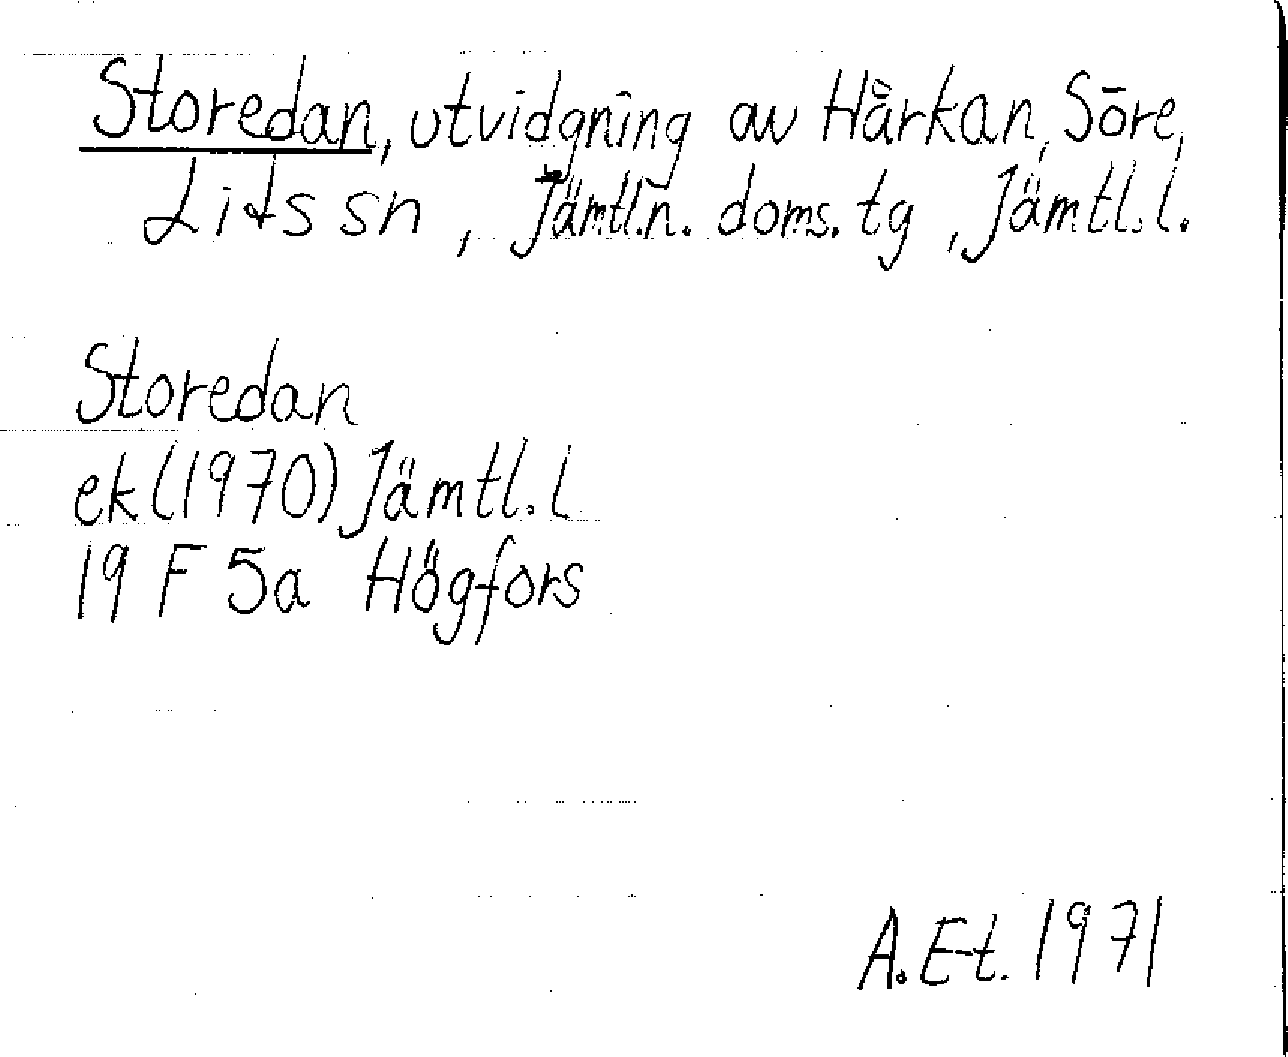 Storedan, utvidgning av Hårkan, Söre,
Lits sn, Jämtl.n. doms. tg, Jämtl.l.
Storedan
ek (1970) Jämtl.l
19 F 5a Högfors
A.E-t. 1971